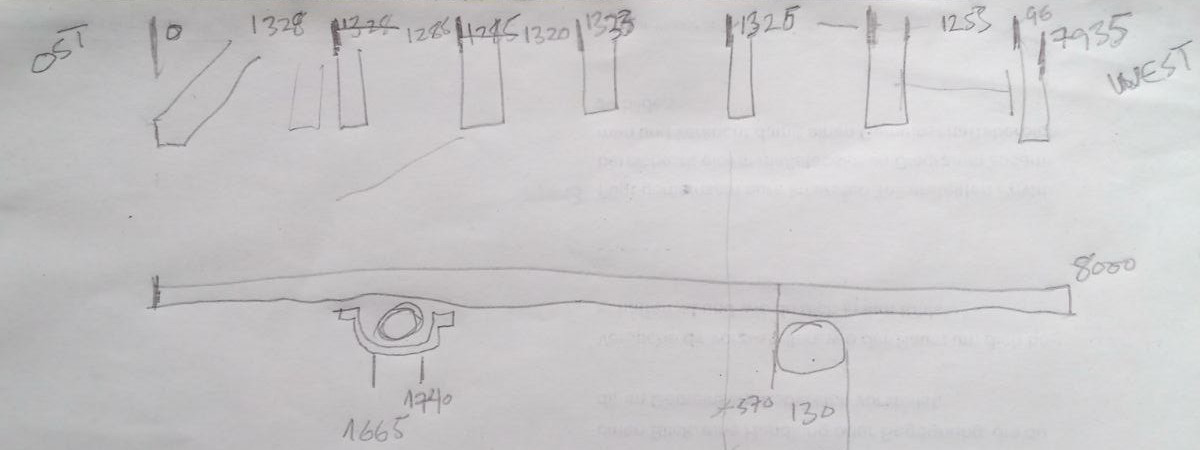 OST 0 1328 1328 1286 1285 1320 1323 1325 — 1253 96 7935 WEST
8000
1740 1370 130
1665